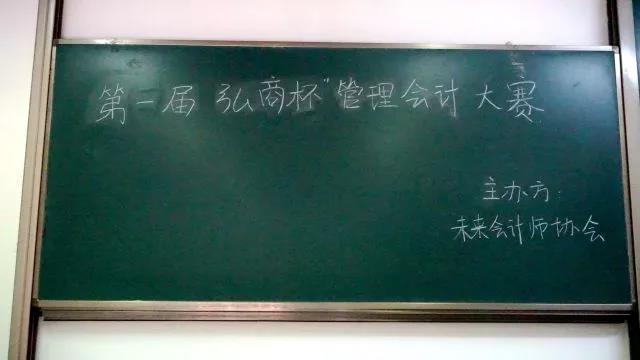 第一届 弘商杯"管理会计大赛
主办方:
未来会计师协会